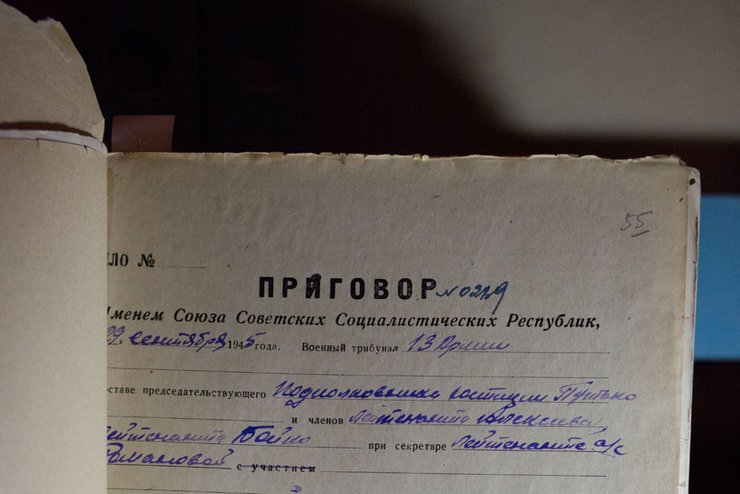 55
ЛО №
ПРИГОВОР №0279
Именем Союза Советских Социалистических Республик,
29 сентября 1945 года. Военный трибунал 13 Армии
оставе председательствующего Подполковника юстиции Путько
и членов лейтенанта Алексеева,
лейтенанта Бойко при секретаре лейтенанте а/с
Романовой с участием